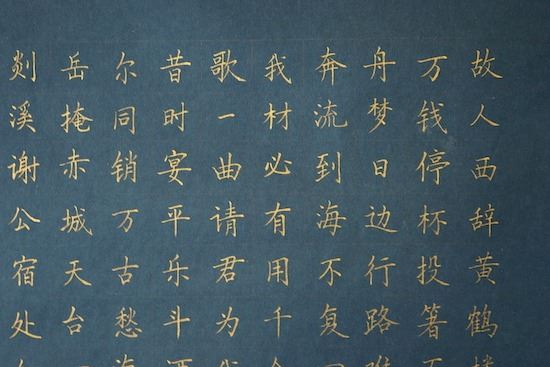 故人西辞黄鹤楼
万钱停杯投箸不
舟梦日边行路难
奔流到海不复
我材必有用千
歌一曲请君为我
昔时宴平乐斗酒
尔同销万古愁海
岳掩赤城天台
剡溪谢公宿处